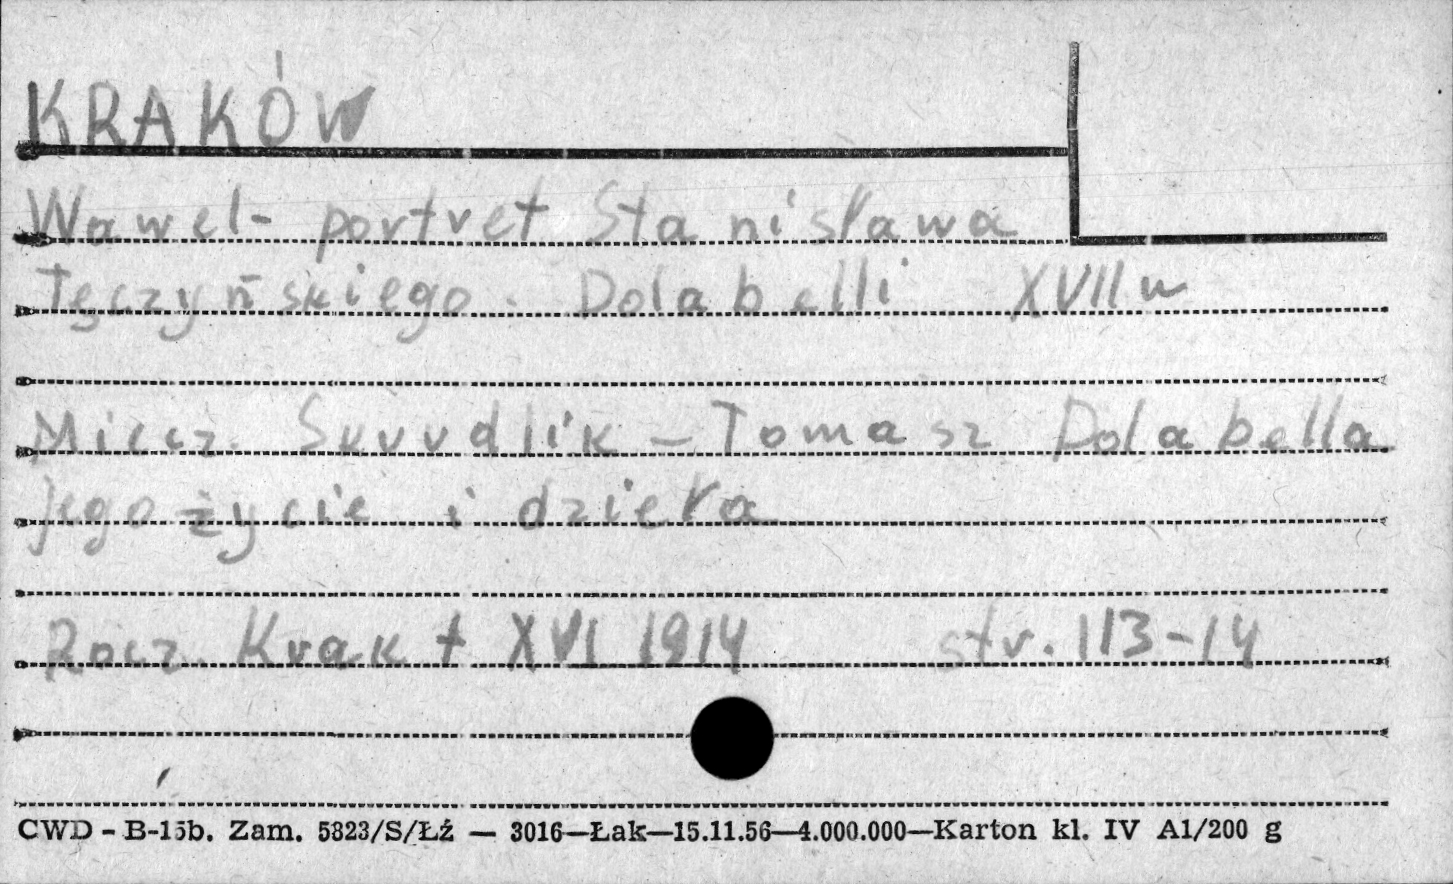 KRAKÓW
Wawel - portret Stanisława
Tęczyńskiego. Dolabelli XVII w
Miecz. Skrudlik - Tomasz Dolabella
jego życie i dzieła
Rocz. Krak t XVI 1914 str. 113-14
CWD - B-15b. Zam. 5823/S/Łź — 3016—Łak—15.11.56—4.000.000—Karton kl. IV A1/200 g